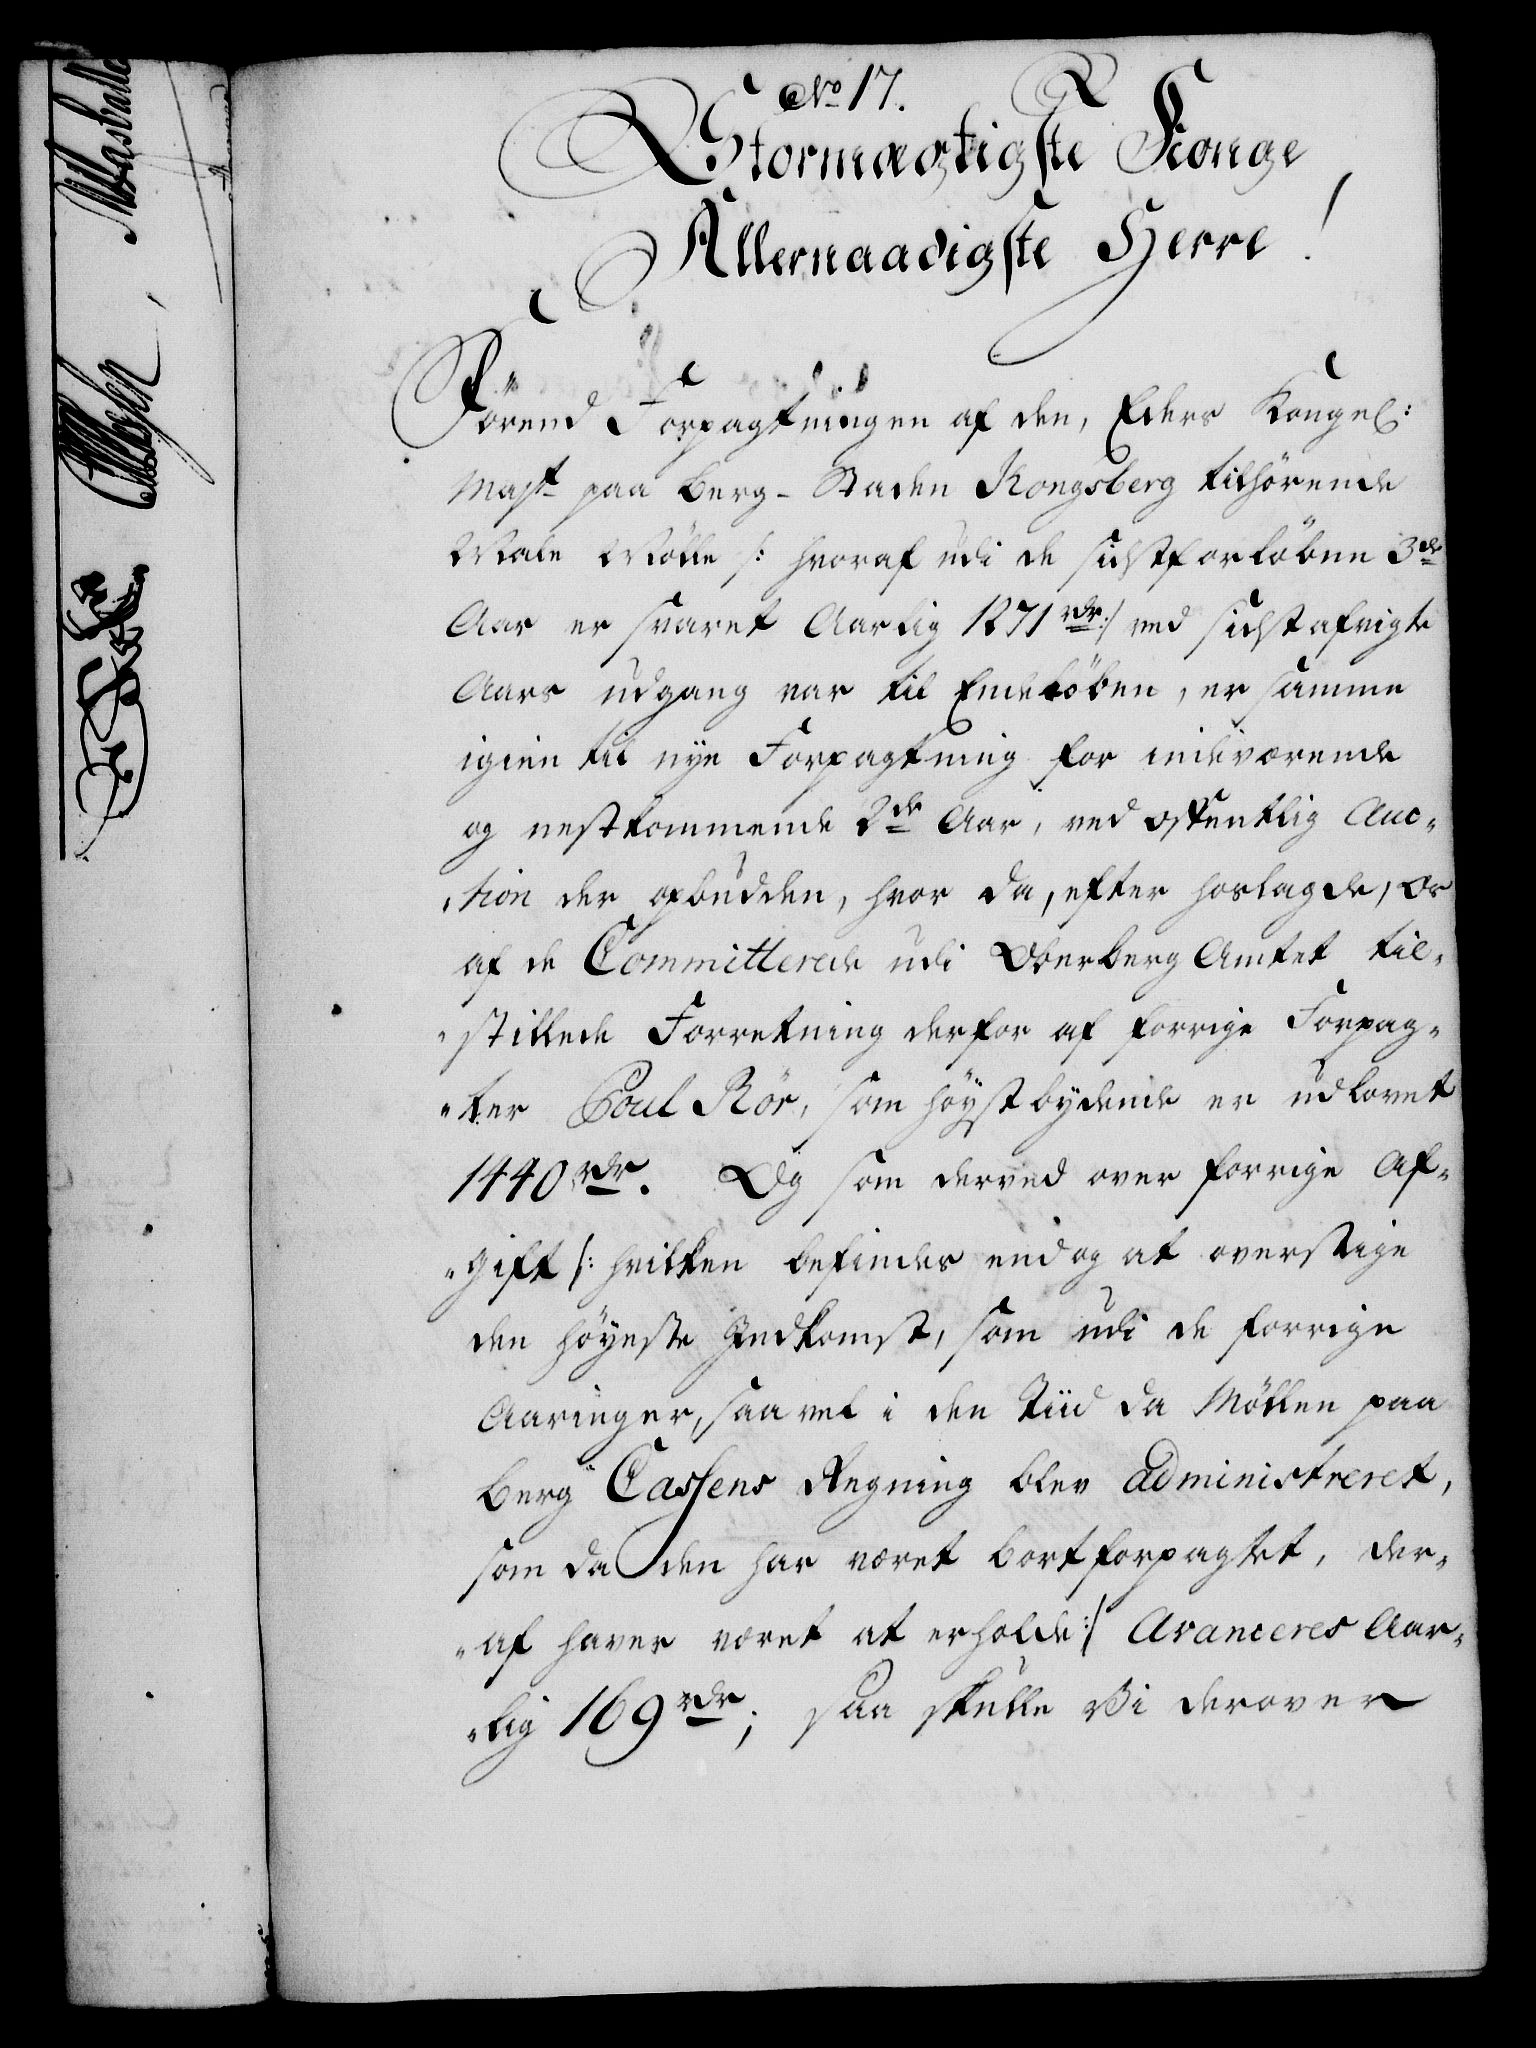 No 17.
Stormægtigste Konge
Allernaadigste Herre!
Förend Forpagtningen af den, Eders Kongel:
Mayt paa Berg-Staden Kongsberg tilhörende
Male Mölle /: hvoraf udi de sidstforløbne 3de
Aar er svaret Aarlig 1271 rdr :/ ved sidstafvigte
Aars udgang var til Ende löben, er samme
igien til nye Forpagtning for indeværende
og nestkommende 2de Aar, ved offentlig Auc-
tion der opbudden, hvor da, efter hoslagde, os
af de Committerede udi Oberberg Amtet til-
stillede Forretning derfor af forrige Forpag-
ter Poul Rör, som höystbydende er udlovet
1440 rdr. Og som derved over forrige Af-
gift /: hvilken befindes endog at overstige
den höyeste Indkomst, som udi de forrige
Aaringer, saavel i den Tiid da Möllen paa
Berg Cassens Regning blev administreret,
som da den har været bortforpagtet, der-
af haver været at erholde :/ Avanceres Aar-
lig 169 rdr; saa skulle Vi derover